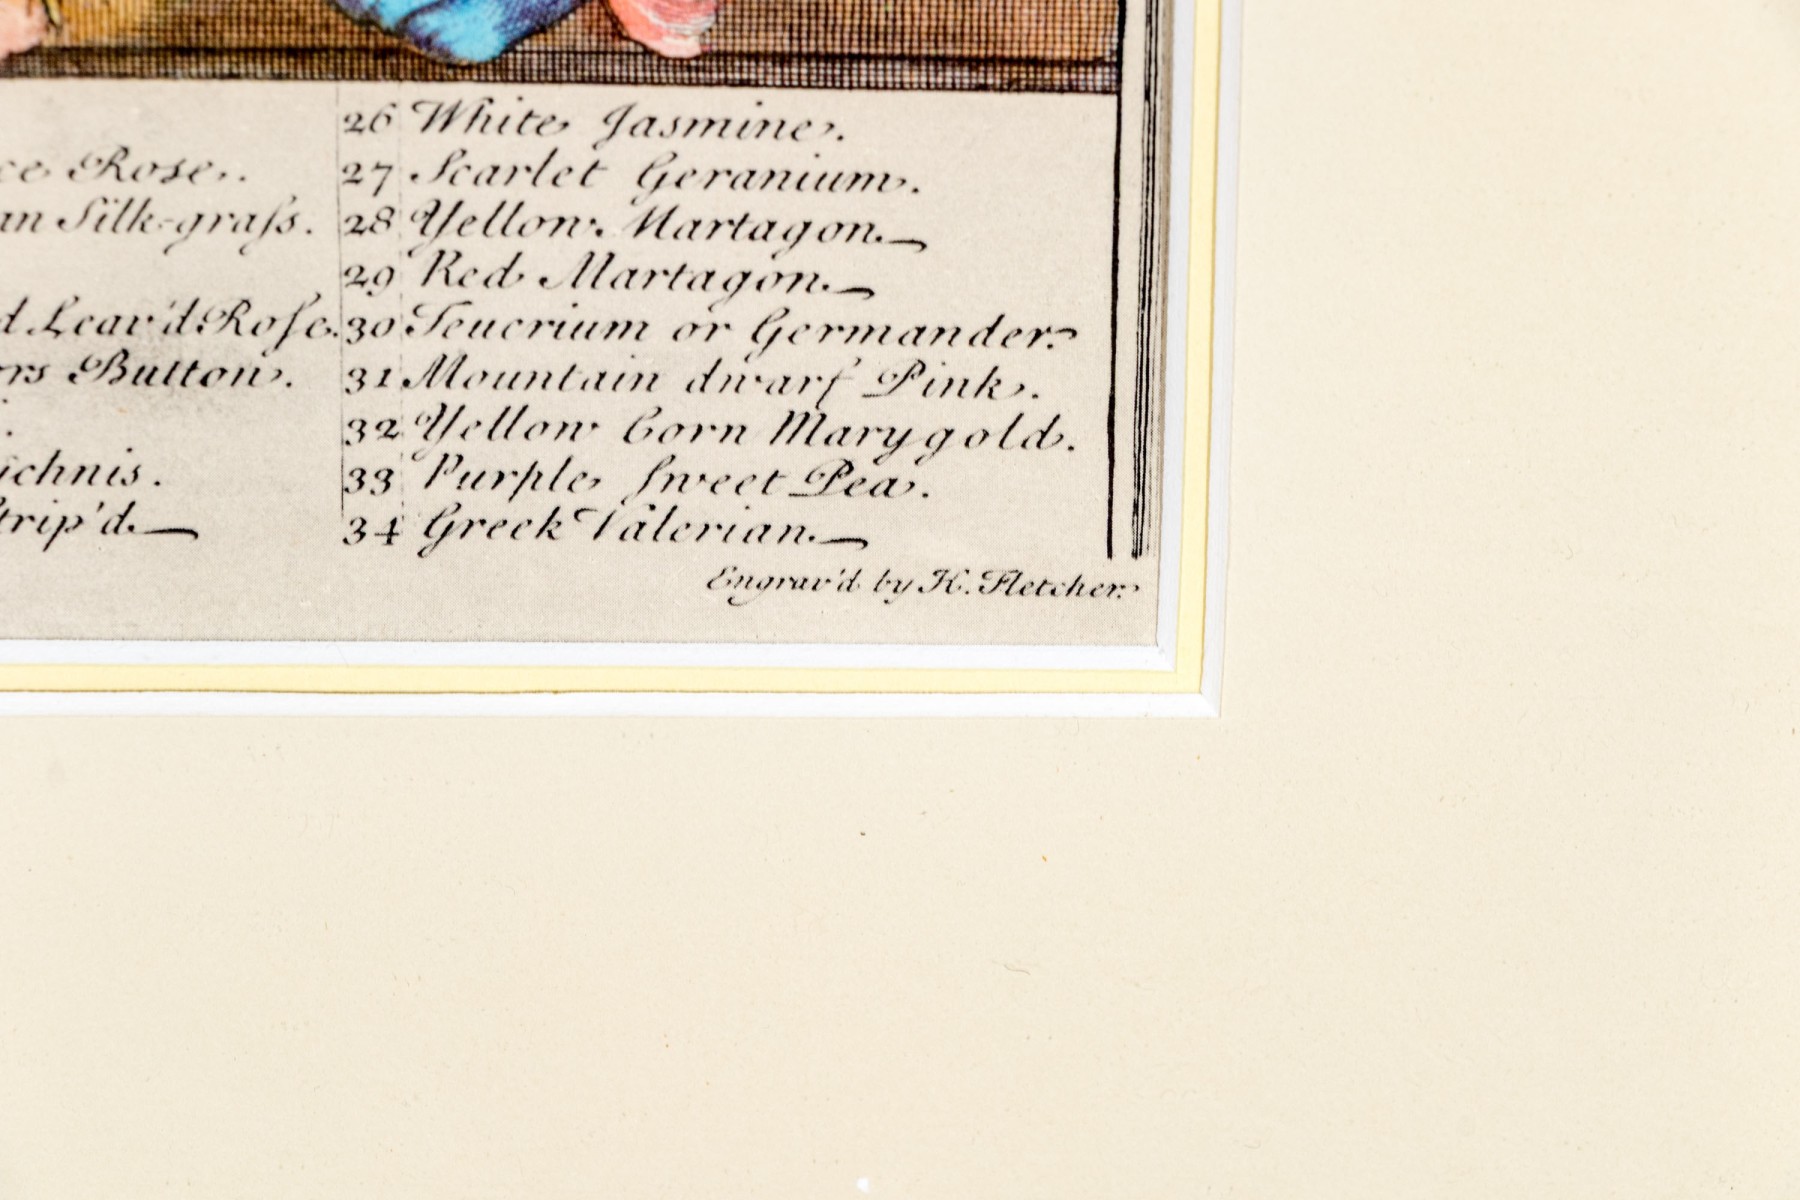 Rose.
Silk-graſs.
Leav'd Roſe.
Button.
trip'd.
26 White Jasmine.
27 Scarlet Geranium.
28 Yellow Martagon.
29 Red Martagon.
30 Teucrium or Germander.
31 Mountain dwarf Pink.
32 Yellow Corn Marygold.
33 Purple Sweet Pea.
34 Greek Valerian.
Engrav'd by H. Fletcher.